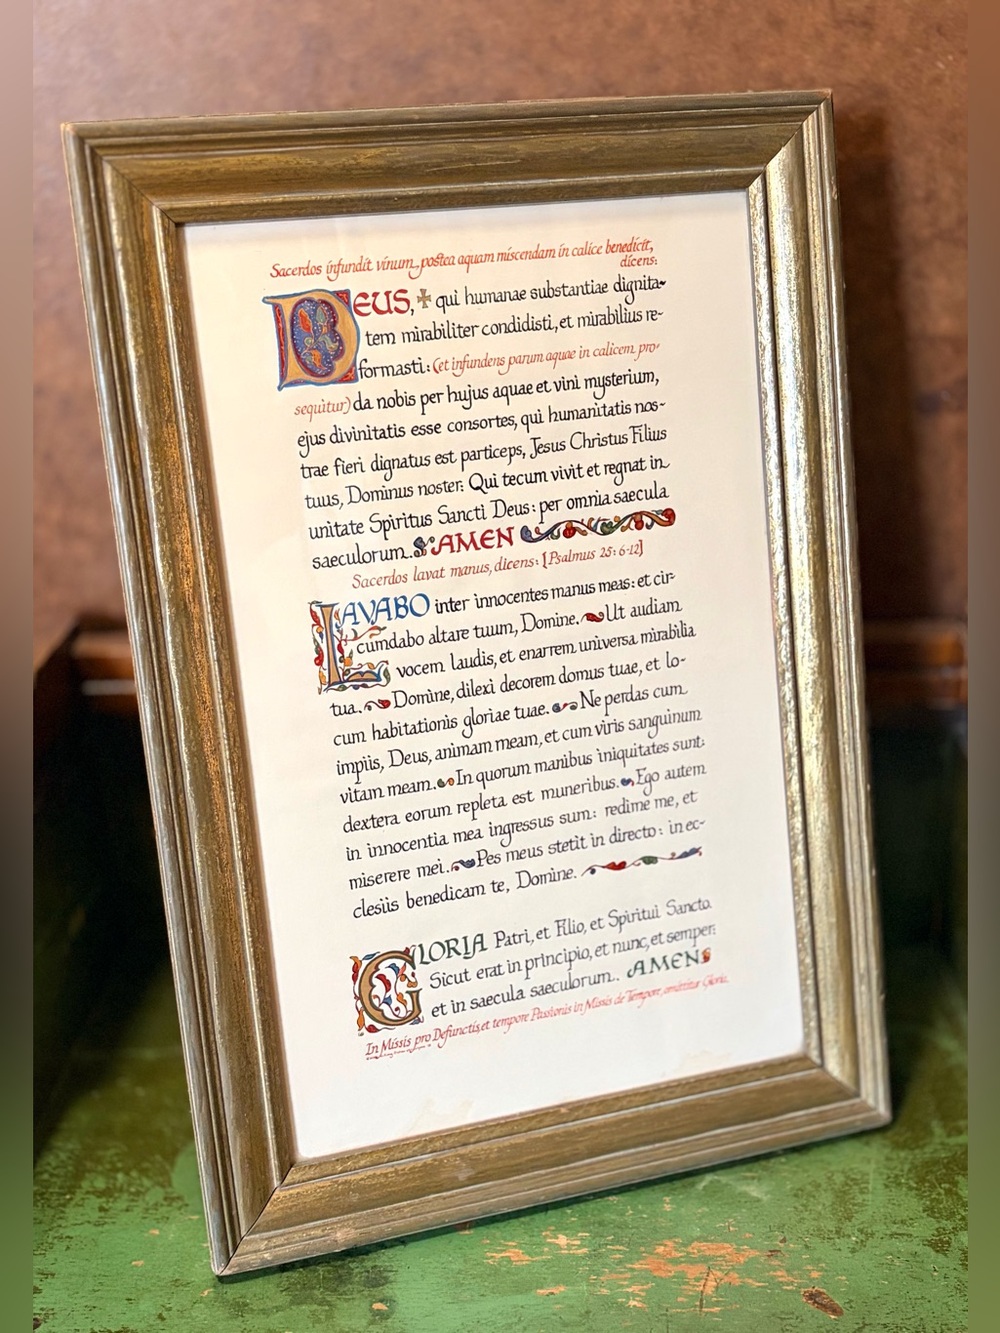 Sacerdos infundit vinum, postea aquam miscendam in calice benedicit,
dicens:
DEUS, ✠ qui humanae substantiae dignita~
tem mirabiliter condidisti, et mirabilius re~
formasti: (et infundens parum aquae in calicem, pro~
sequitur) da nobis per hujus aquae et vini mysterium,
ejus divinitatis esse consortes, qui humanitatis nos~
trae fieri dignatus est particeps, Jesus Christus Filius
tuus, Dominus noster: Qui tecum vivit et regnat in
unitate Spiritus Sancti Deus: per omnia saecula
saeculorum. AMEN
Sacerdos lavat manus, dicens: [Psalmus 25: 6-12]
LAVABO inter innocentes manus meas: et cir~
cumdabo altare tuum, Domine. Ut audiam
vocem laudis, et enarrem universa mirabilia
tua. Domine, dilexi decorem domus tuae, et lo~
cum habitationis gloriae tuae. Ne perdas cum
impiis, Deus, animam meam, et cum viris sanguinum
vitam meam. In quorum manibus iniquitates sunt:
dextera eorum repleta est muneribus. Ego autem
in innocentia mea ingressus sum: redime me, et
miserere mei. Pes meus stetit in directo: in ec~
clesiis benedicam te, Domine.
GLORIA Patri, et Filio, et Spiritui Sancto.
Sicut erat in principio, et nunc, et semper:
et in saecula saeculorum. AMEN
In Missis pro Defunctis, et tempore Passionis in Missis de Tempore, omittitur Gloria.